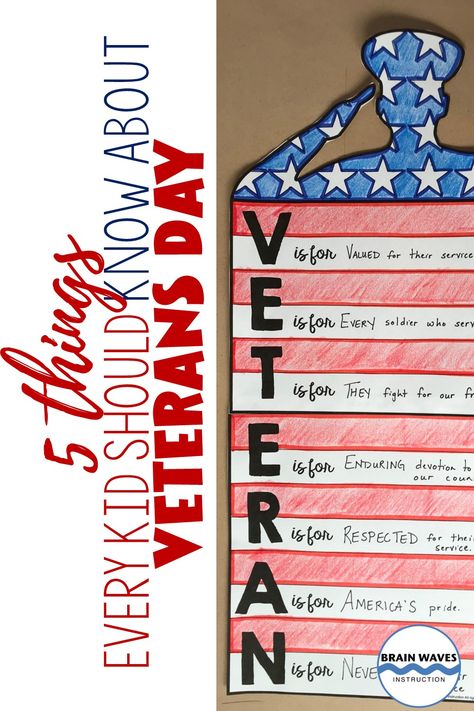 5 things
EVERY KID SHOULD KNOW ABOUT
VETERANS DAY
V is for VALUED for their service
E is for EVERY soldier who serv
T is for THEY fight for our fr
E is for ENDURING devotion to
our coun
R is for RESPECTED for thei
service.
A is for AMERICA'S pride.
N is for NEVE
BRAIN WAVES
INSTRUCTION